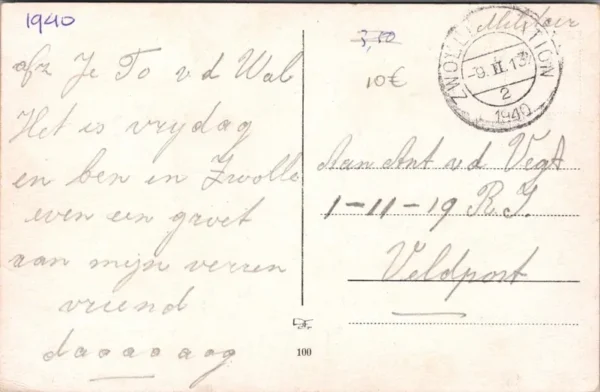 1940
afz Je To v d Wal
Het is vrydag
en ben in Zwolle
even een groet
van mijn verren
vriend
daaaaaag
3,50
10€
Militair
ZWOLLE STATION
-9.II.13
2
1940
Aan Ant v d Vegt
1-11-19 R.I.
Veldpost
100